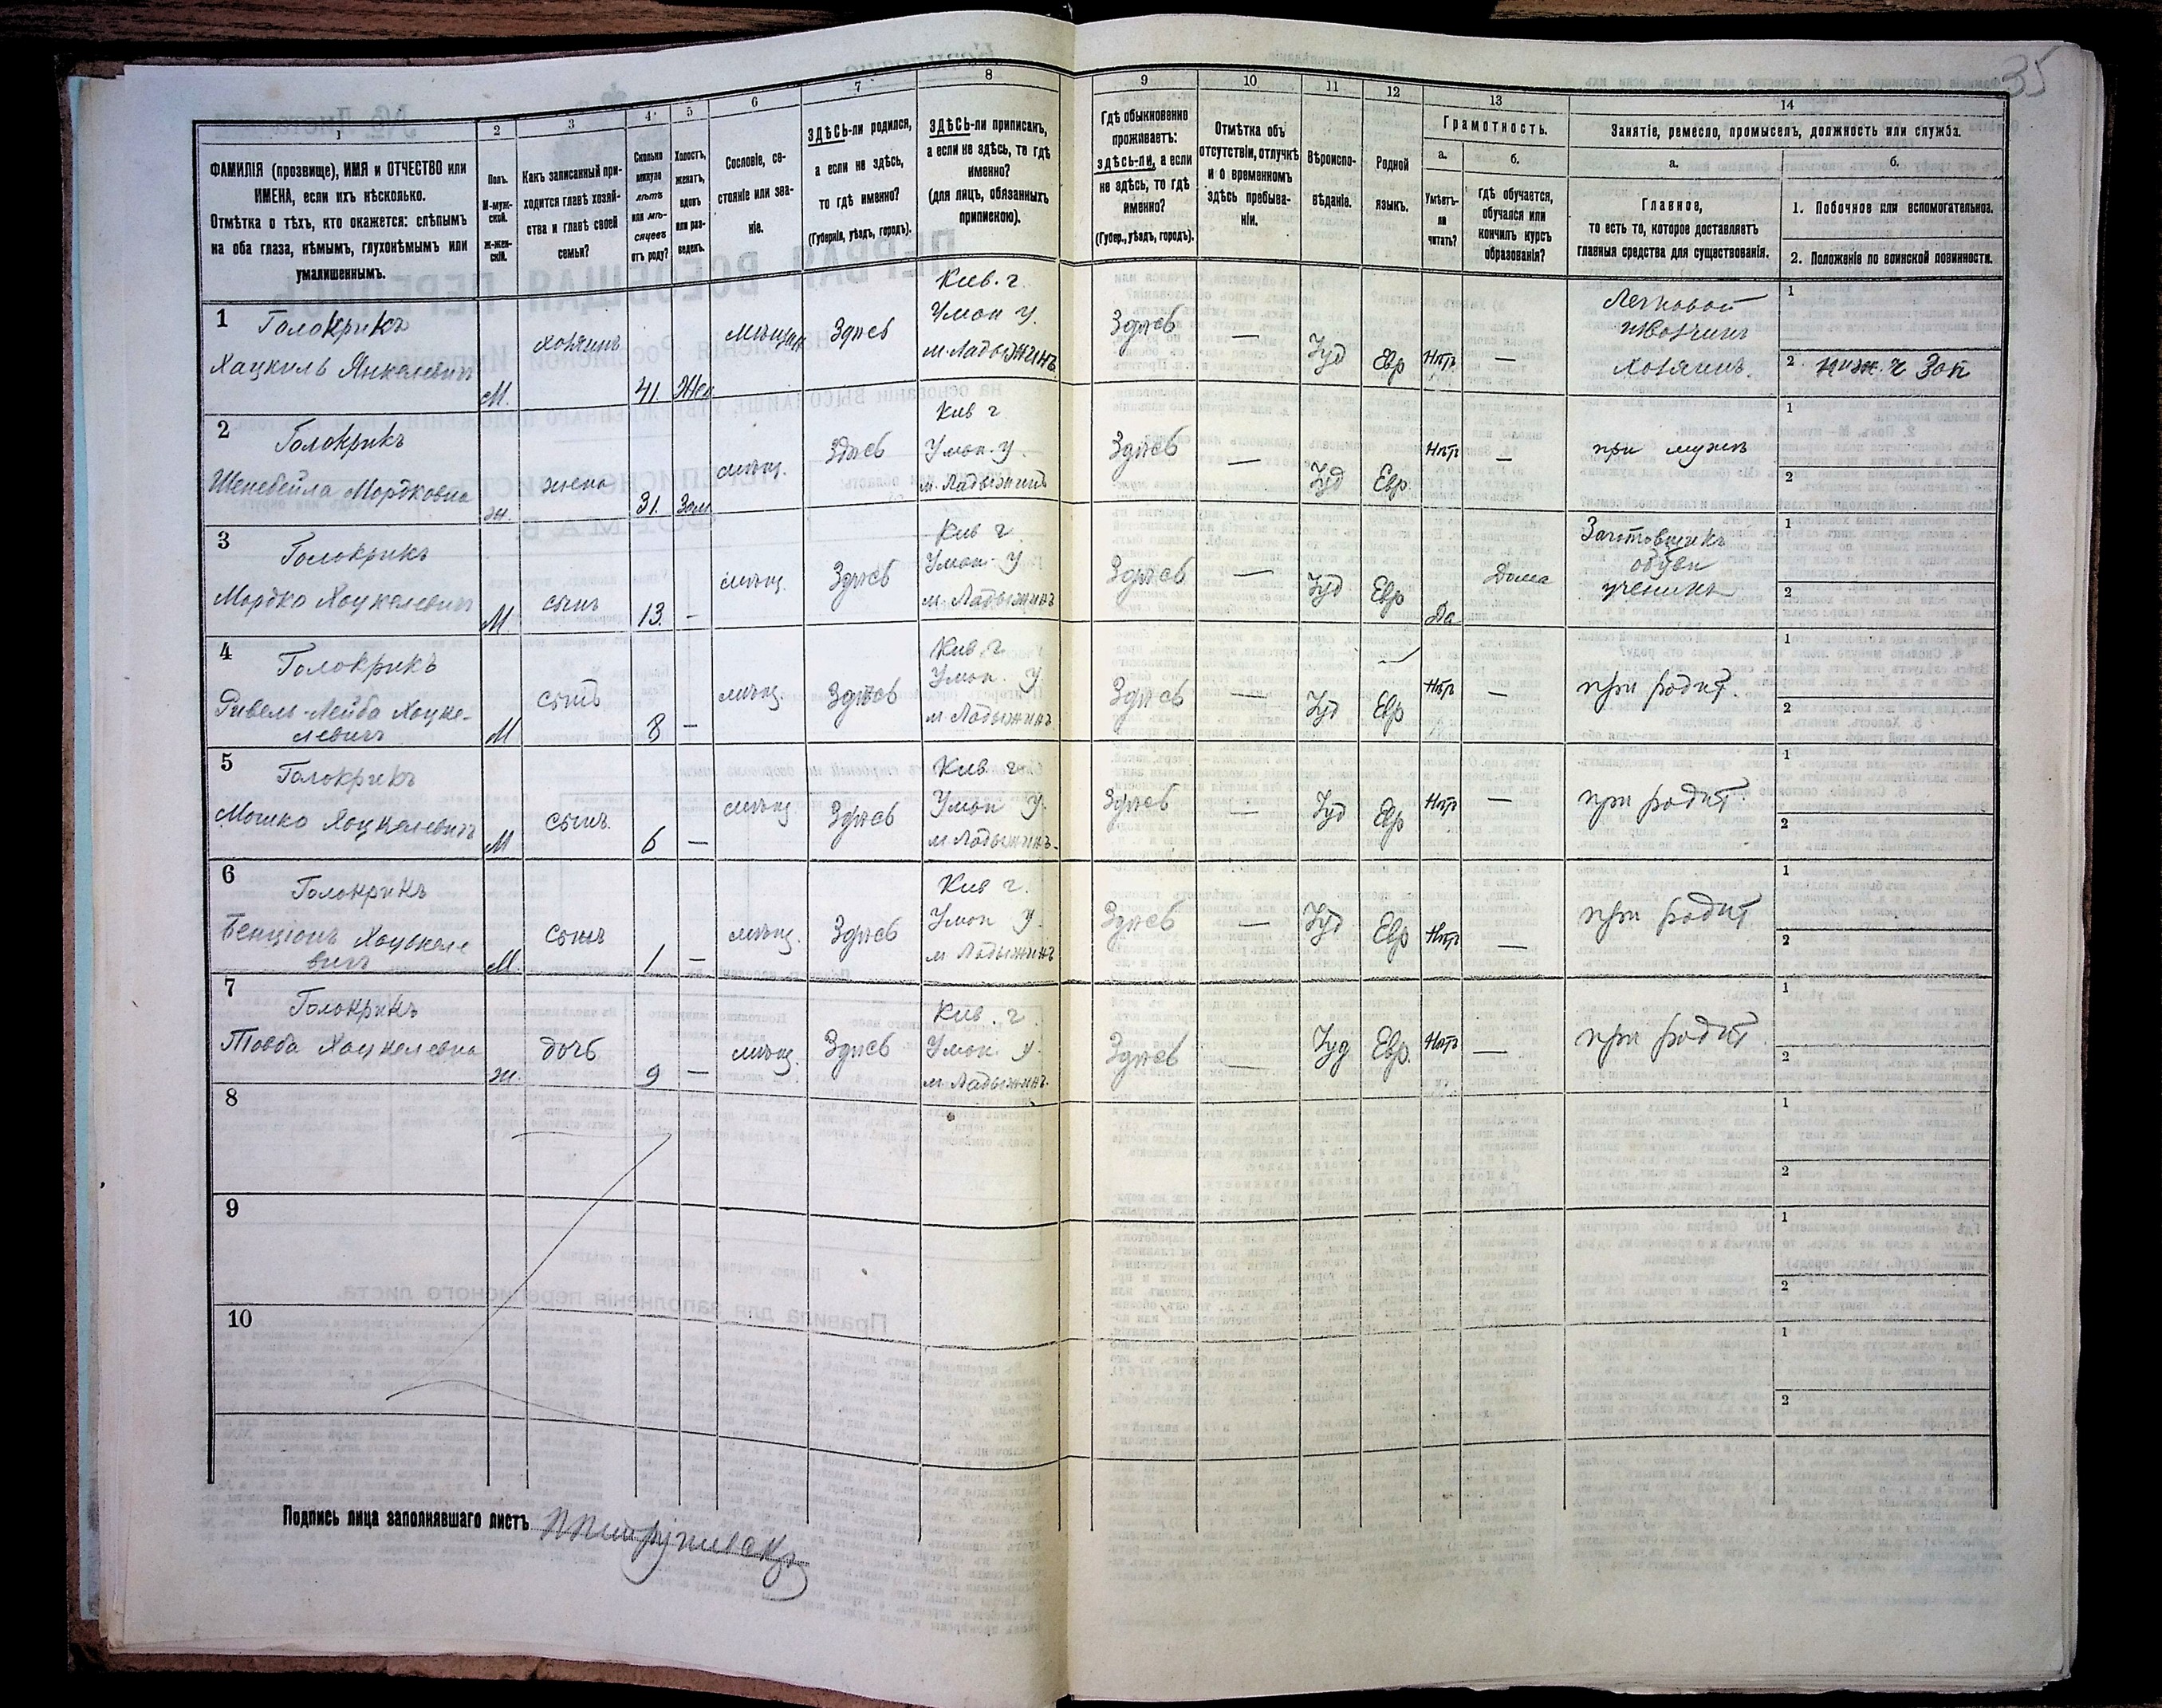 35
1 2 3 4 5 6 7 8 9 10 11 12 13 14
ФАМИЛІЯ (прозвище), ИМЯ и ОТЧЕСТВО или
ИМЕНА, если ихъ нѣсколько.
Отмѣтка о тѣхъ, кто окажется: слѣпымъ
на оба глаза, нѣмымъ, глухонѣмымъ или
умалишеннымъ.
Полъ.
М-муж-
ской.
Ж-жен-
скій.
Какъ записанный при-
ходится главѣ хозяй-
ства и главѣ своей
семьи?
Сколько
минуло
лѣтъ
или мѣ-
сяцевъ
отъ роду?
Холостъ,
женатъ,
вдовъ
или раз-
веденъ.
Сословіе, со-
стояніе или зва-
ніе.
ЗДѢСЬ-ли родился,
а если не здѣсь,
то гдѣ именно?
(Губернія, уѣздъ, городъ).
ЗДѢСЬ-ли приписанъ,
а если не здѣсь, то гдѣ
именно?
(для лицъ, обязанныхъ
припискою).
Гдѣ обыкновенно
проживаетъ:
здѣсь-ли, а если
не здѣсь, то гдѣ
именно?
(Губер., уѣздъ, городъ).
Отмѣтка объ
отсутствіи, отлучкѣ
и о временномъ
здѣсь пребыва-
ніи.
Вѣроиспо-
вѣданіе.
Родной
языкъ.
Грамотность.
а.
Умѣетъ-
ли
читать?
б.
Гдѣ обучается,
обучался или
кончилъ курсъ
образованія?
Занятіе, ремесло, промыселъ, должность или служба.
а.
Главное,
то есть то, которое доставляетъ
главныя средства для существованія.
б.
1. Побочное или вспомогательное.
2. Положеніе по воинской повинности.
1 Голокрикъ
Хацкиль Янкелевичъ
М. хозяинъ 41 Жен. Мѣщан. Здѣсь
Кив. г.
Уман у.
м. Ладыжинъ
Здѣсь — Іуд Евр Нѣтъ —
Легковой
извозчикъ
хозяинъ.
1
2 ниж. ч Зап
2 Голокрикъ
Шенебейла Мордковна
ж. жена 31. Зам мѣщ. Здѣсь
Кив г
Уман. у.
м. Ладыжинъ
Здѣсь — Іуд Евр. Нѣтъ — при мужѣ
1
2
3 Голокрикъ
Мордко Хацкелевичъ
М сынъ 13. - мѣщ. Здѣсь
Кив г.
Уман. у
м. Ладыжинъ
Здѣсь — Іуд Евр Да Дома
обуви
ученикъ
1
2
4 Голокрикъ
Лейба Хацке-
левичъ
М сынъ 8 - мѣщ. Здѣсь
Кив. г
Уман. у
м Ладыжинъ
Здѣсь — Іуд Евр Нѣтъ — при родит.
1
2
5 Голокрикъ
Мошко Хацкелевичъ
М сынъ. 6 — мѣщ Здѣсь
Кив г
Уман у.
м Ладыжинъ.
Здѣсь — Іуд Евр Нѣтъ — при родит.
1
2
6 Голокрикъ
Бенціонъ Хацькеле
вичъ
М. сынъ 1 — мѣщ. Здѣсь
Кив г.
Уман у.
м Ладыжинъ
Здѣсь — Іуд Евр Нѣтъ — при родит
1
2
7 Голокрикъ
Товба Хацкелевна
ж. дочь 9 — мѣщ. Здѣсь
Кив. г.
Уман. у.
м Ладыжинъ.
Здѣсь — Іуд Евр. Нѣтъ — при родит
1
2
8
1
2
9
1
2
10
1
2
Подпись лица заполнявшаго листъ